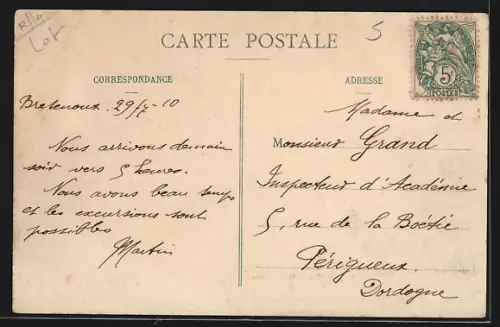 Lot
5
CARTE POSTALE
CORRESPONDANCE
Bretenoux 29/7-10
Nous arrivons demain
soir vers 5 heures.
Nous avons beau temps
et les excursions sont
possibles
Martin
5c
POSTES
ADRESSE
Madame et
Monsieur Grand
Inspecteur d'Académie
5, rue de la Boëtie
Périgueux
Dordogne